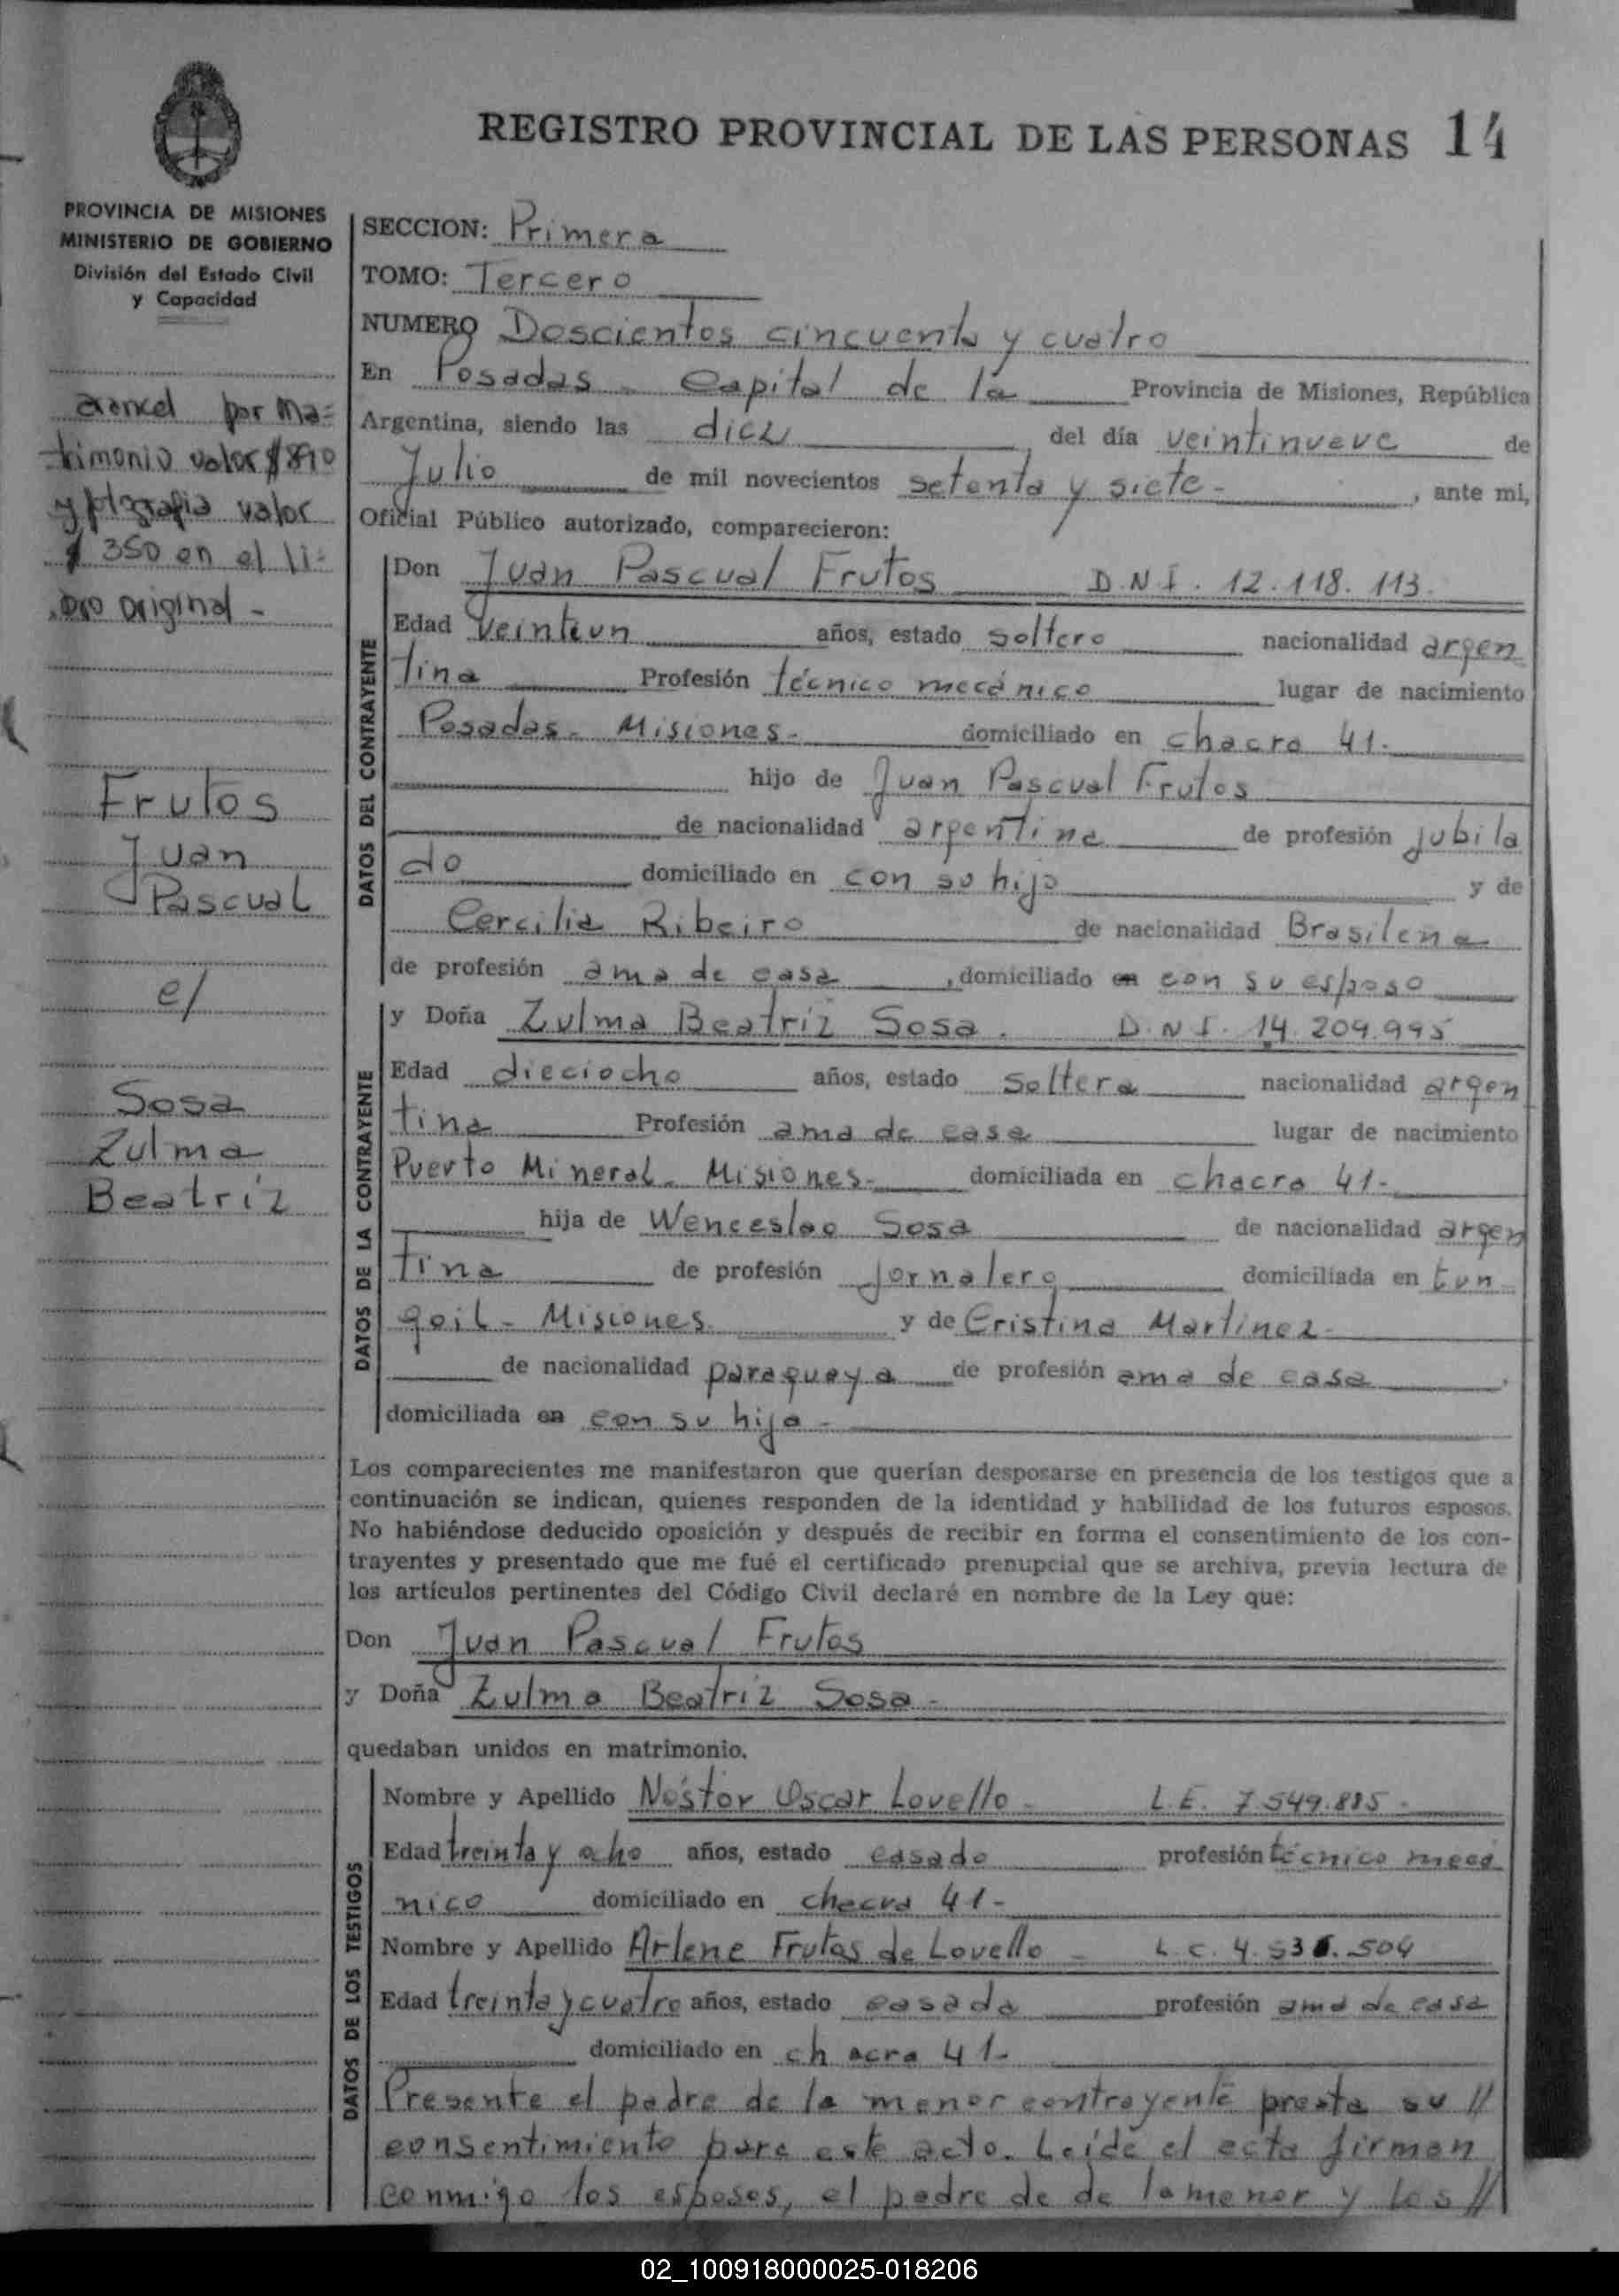 REGISTRO PROVINCIAL DE LAS PERSONAS 14
PROVINCIA DE MISIONES
MINISTERIO DE GOBIERNO
División del Estado Civil
y Capacidad
arancel por Ma=
trimonio valor $ 890
y valor
$ 350 en el li=
bro original -
Frutos
Juan
Pascual
c/
Sosa
Zulma
Beatriz
SECCION: Primera
TOMO: Tercero
NUMERO Doscientos cincuenta y cuatro
En Posadas - Capital de la Provincia de Misiones, República
Argentina, siendo las diez del día veintinueve de
Julio de mil novecientos setenta y siete - , ante mi,
Oficial Público autorizado, comparecieron:
DATOS DEL CONTRAYENTE
Don Juan Pascual Frutos D.N.I. 12.118.113.
Edad veintiun años, estado soltero nacionalidad argen
tina Profesión técnico mecánico lugar de nacimiento
Posadas - Misiones - domiciliado en chacra 41 -
hijo de Juan Pascual Frutos
de nacionalidad argentina de profesión jubila
do domiciliado en con su hijo y de
Cercilia Ribeiro de nacionalidad Brasilena
de profesión ama de casa , domiciliado en con su esposo
DATOS DE LA CONTRAYENTE
y Doña Zulma Beatriz Sosa . D.N.I. 14.209.995
Edad dieciocho años, estado soltera nacionalidad argen
tina Profesión ama de casa lugar de nacimiento
Puerto Mineral - Misiones - domiciliada en chacra 41 -
hija de Wenceslao Sosa de nacionalidad argen
tina de profesión jornalero domiciliada en
Misiones y de Cristina Martinez -
de nacionalidad paraguaya de profesión ama de casa ,
domiciliada en con su hija -
Los comparecientes me manifestaron que querían desposarse en presencia de los testigos que a
continuación se indican, quienes responden de la identidad y habilidad de los futuros esposos.
No habiéndose deducido oposición y después de recibir en forma el consentimiento de los con-
trayentes y presentado que me fué el certificado prenupcial que se archiva, previa lectura de
los artículos pertinentes del Código Civil declaré en nombre de la Ley que:
Don Juan Pascual Frutos
y Doña Zulma Beatriz Sosa -
quedaban unidos en matrimonio.
DATOS DE LOS TESTIGOS
Nombre y Apellido Néstor Oscar Lovello - L.E. 7.549.885 -
Edad treinta y ocho años, estado casado profesión técnico mecá
nico domiciliado en chacra 41 -
Nombre y Apellido Arlene Frutos de Lovello - L.C.
Edad treinta y cuatro años, estado casada profesión ama de casa
domiciliado en chacra 41 -
Presente el padre de la menor contrayente presta su //
consentimiento para este acto. Leída el acta firman
conmigo los esposos, el padre de de la menor y los //
02_100918000025-018206